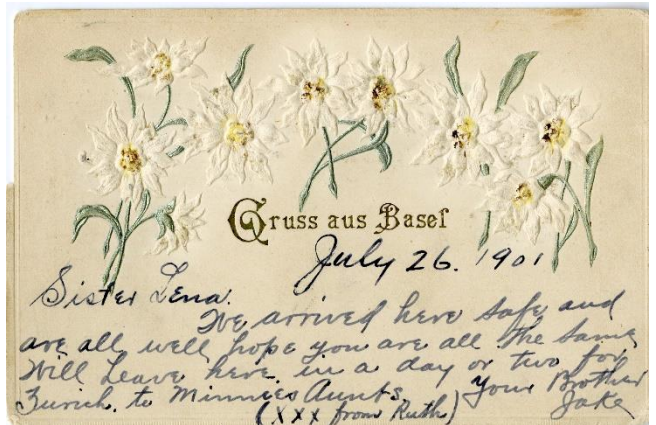 Gruss aus Basel
July 26. 1901
Sister Lena.
We arrived here safe and
are all well, hope you are all the same
Will Leave here in a day or two for
Zurich. to Minnies Aunts. Your Brother
(XXX from Ruth) Jake